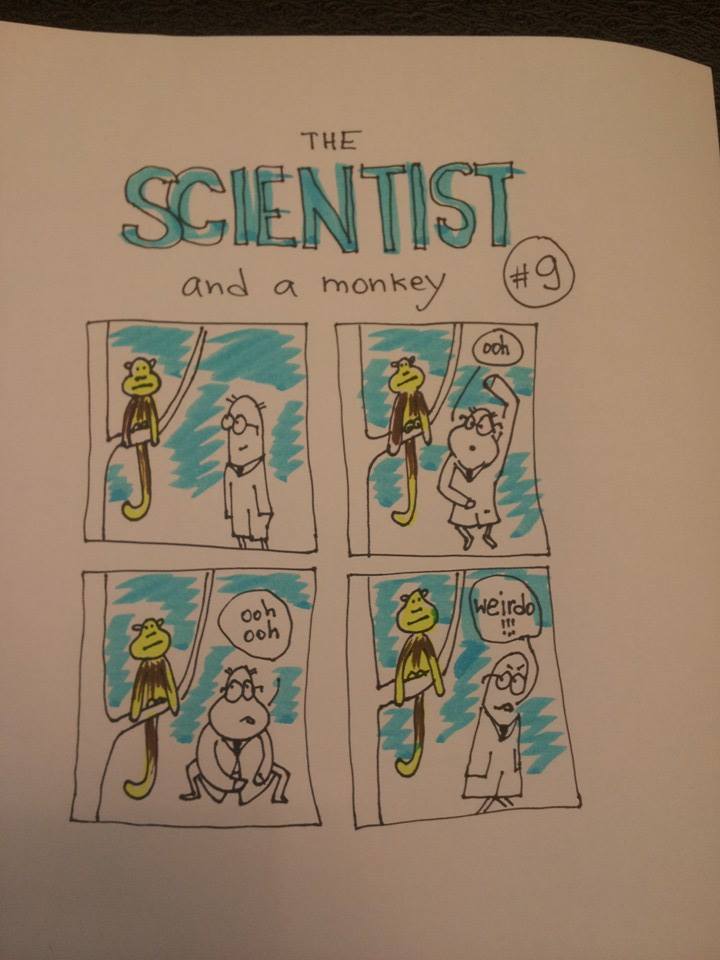 THE
SCIENTIST
and a monkey
#9
ooh
ooh
ooh
weirdo
!!!